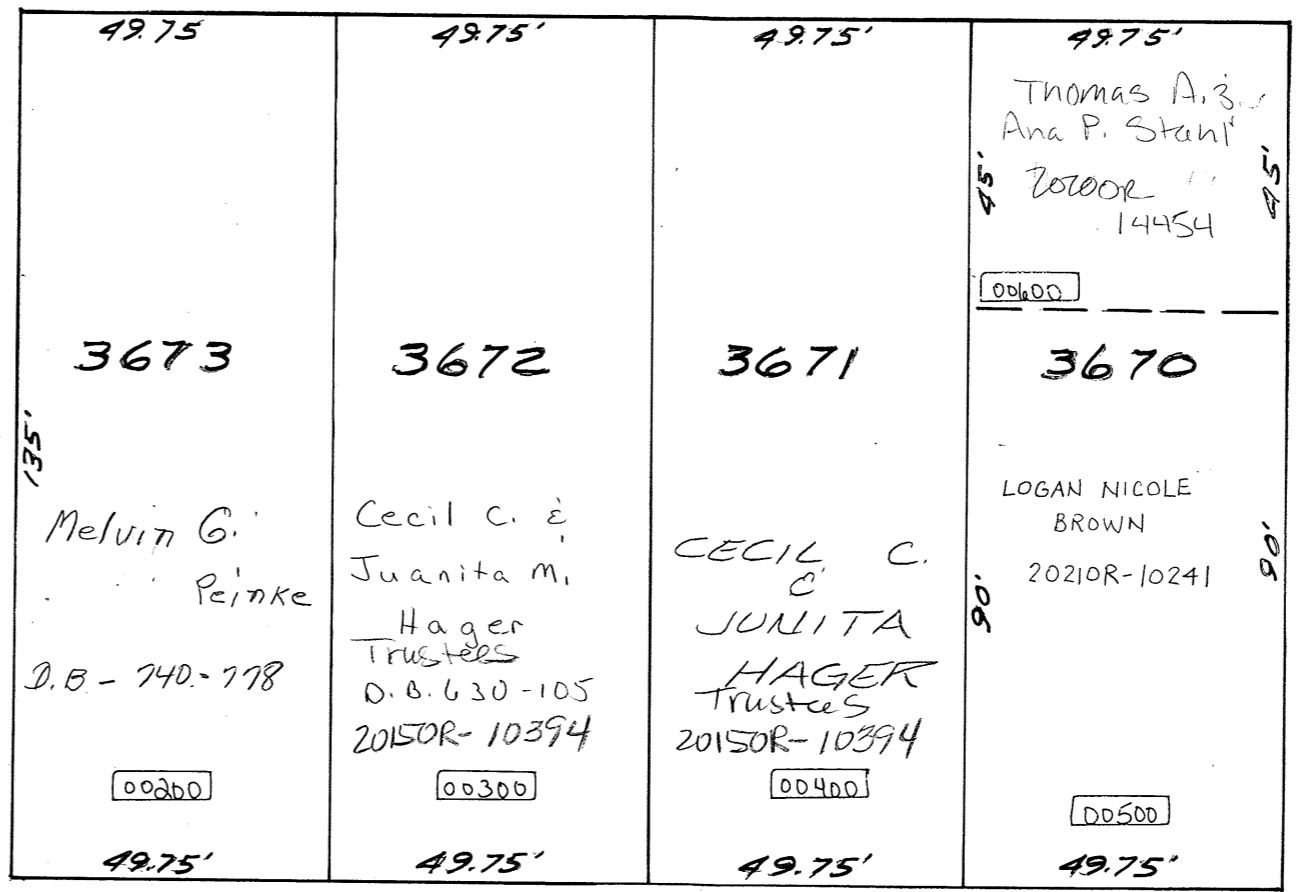 49.75
3673
135'
Melvin G.
Peinke
D.B - 740 - 778
00200
49.75'
49.75'
3672
Cecil C. &
Juanita M.
Hager
Trustees
D.B. 630 - 105
2015OR- 10394
00300
49.75'
49.75'
3671
CECIL C.
&
JUNITA
HAGER
Trustees
2015OR- 10394
00400
49.75'
49.75'
Thomas A. &
Ana P. Stahl
45'
45'
2020OR
14454
00600
3670
LOGAN NICOLE
BROWN
2021OR-10241
90'
90'
00500
49.75'